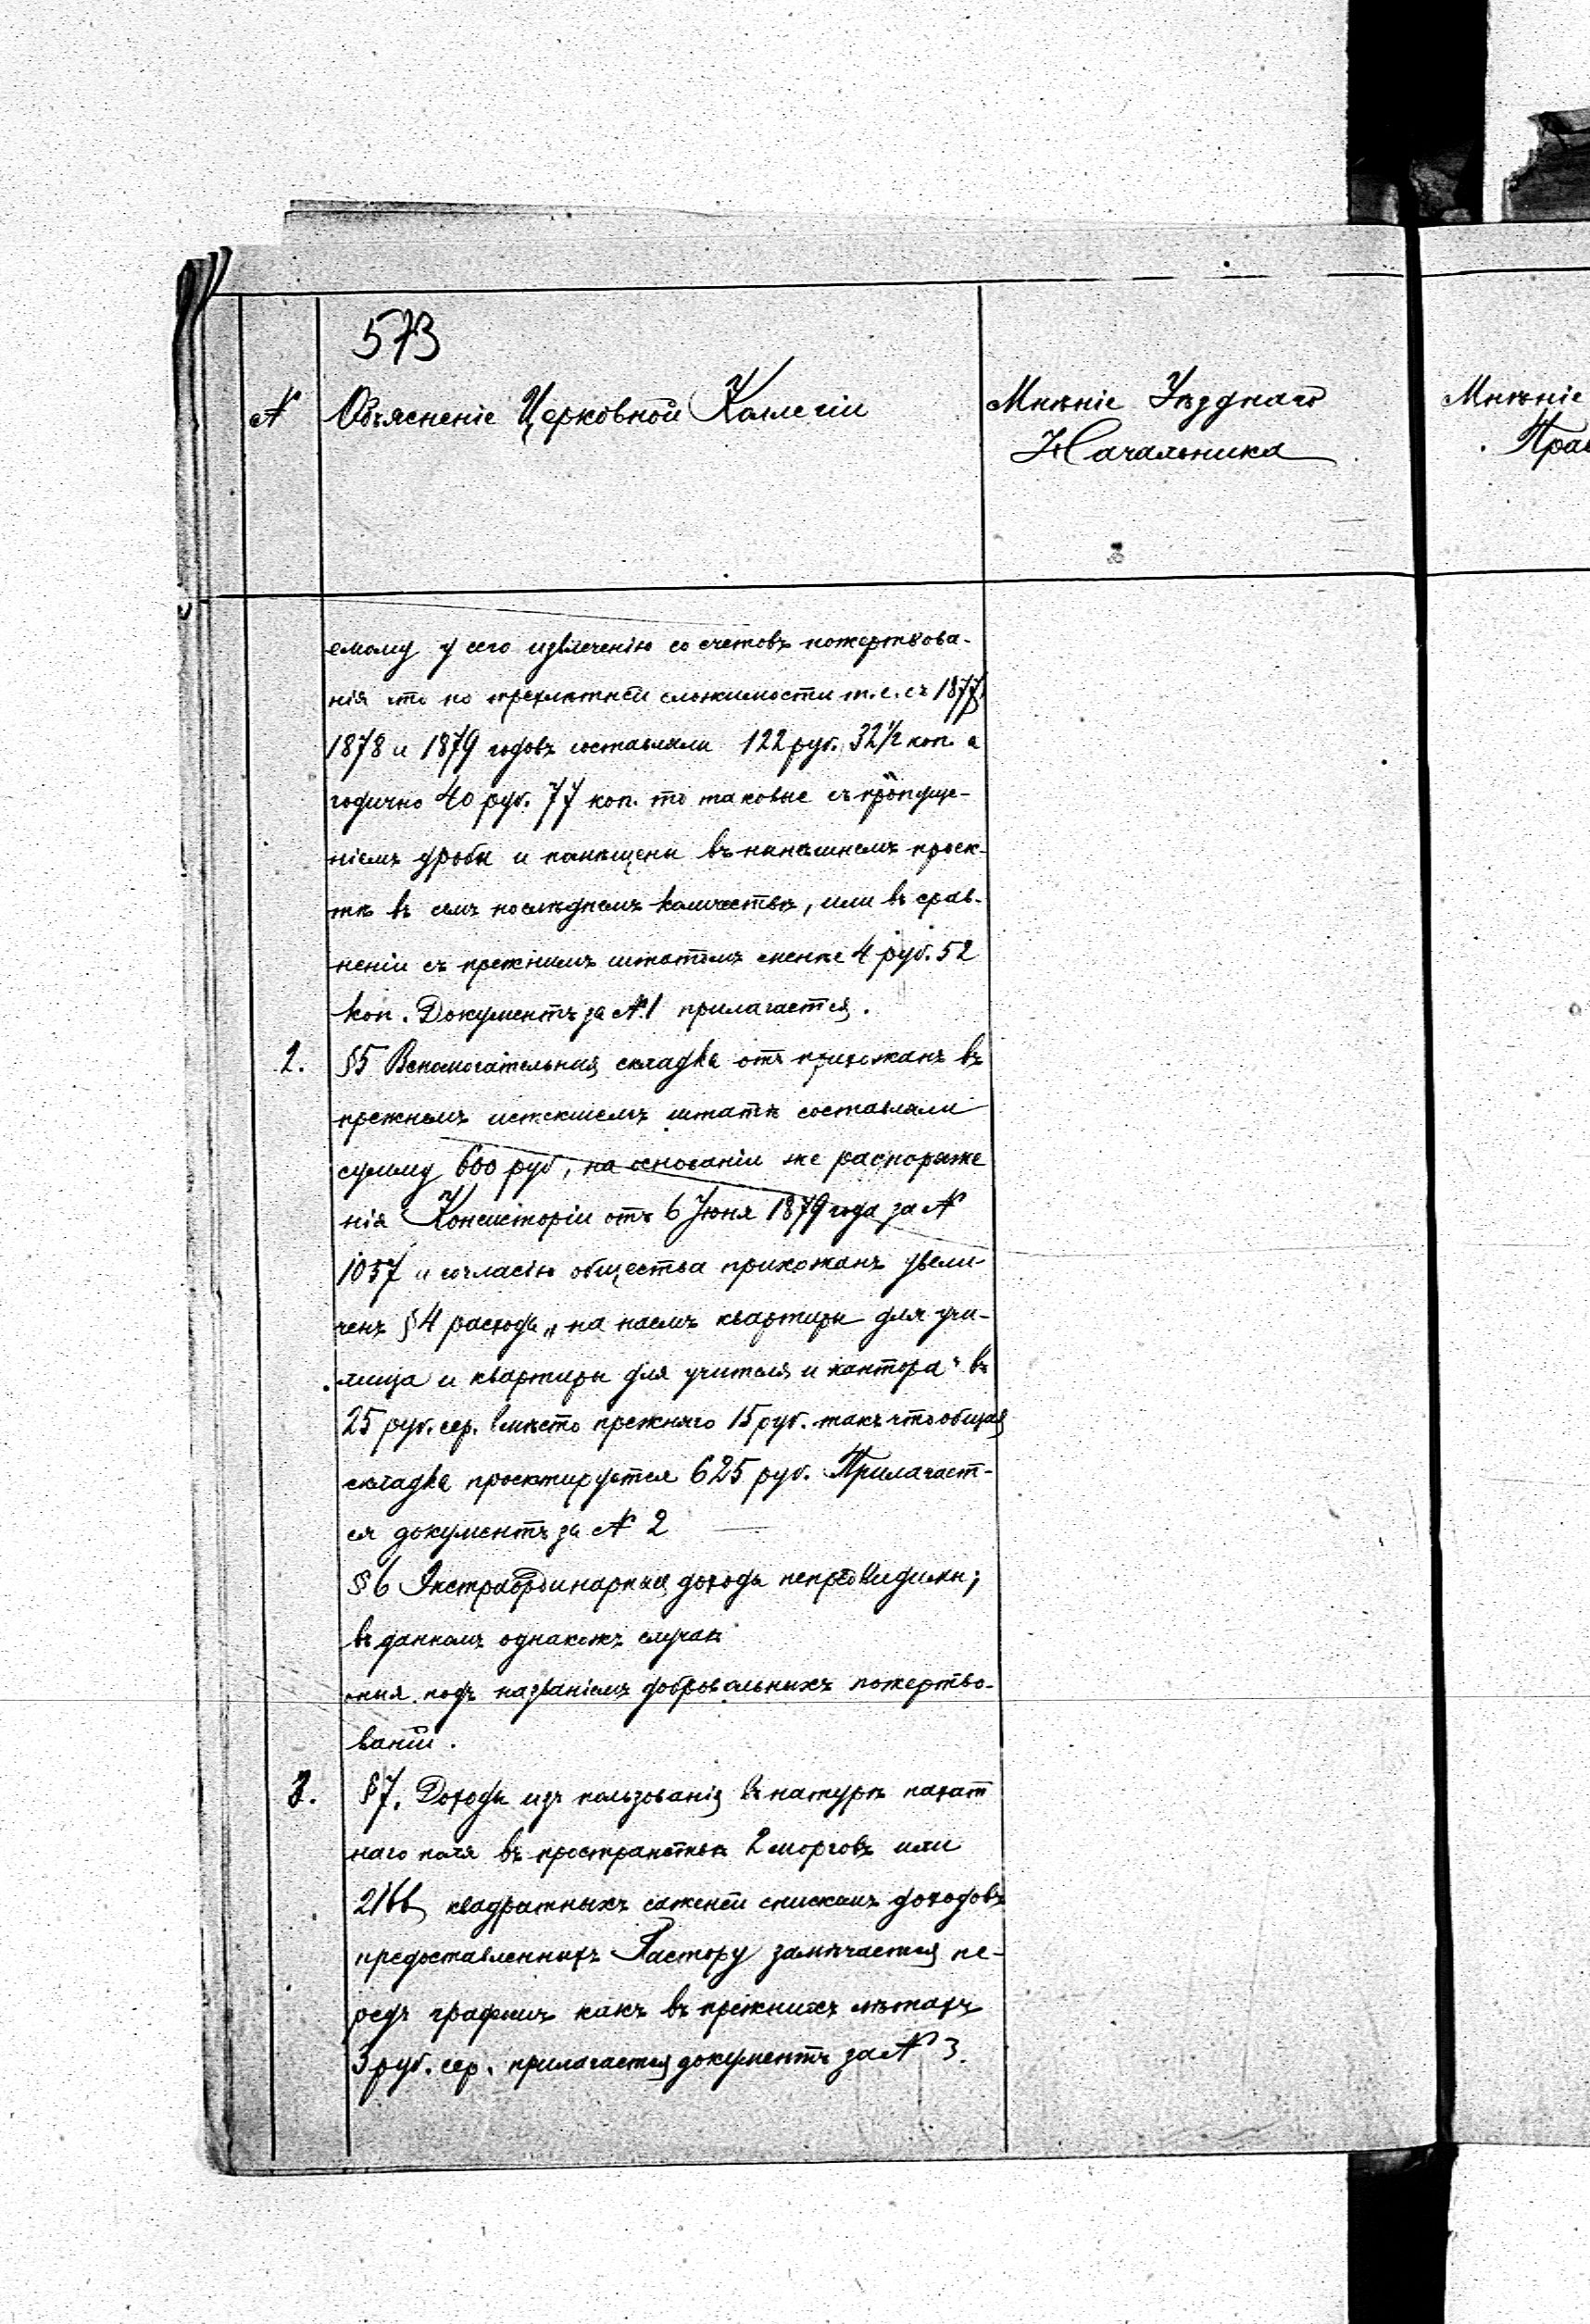 573
№ Объясненіе Церковной Коллегіи
Мнѣніе Уѣзднаго
Начальника
Мнѣніе
Прав
емому у сего извлеченію со счетовъ пожертвова-
нія что по трехлѣтней сложимости т.е. съ 1877,
1878 и 1879 годовъ составляли 122 руб. 32 1/2 коп. а
годично 40 руб. 77 коп. то таковые съ пропуще-
ніемъ дробы и помѣщены въ нынѣшнемъ проек-
тѣ въ семъ послѣднемъ количествѣ, или въ срав-
неніи съ прежнимъ штатомъ менѣе 4 руб. 52
коп. Документъ за № 1 прилагается.
2. §5 Вспомогательная складка отъ прихожанъ въ
прежнемъ истекшемъ штатѣ составляли
сумму 600 руб, на основаніи же распоряже
нія Консисторіи отъ 6 Юня 1879 года за №
1057 и согласію общества прихожанъ увели-
ченъ §4 расхода „на наемъ квартиры для учи-
лища и квартиры для учителя и кантора" въ
25 руб. сер. вмѣсто прежняго 15 руб. такъ что общая
складка проектируется 625 руб. Прилагает-
ся документъ за № 2
§6 Экстраординарная доходы непредвидимы;
въ данномъ однакожъ случаѣ
подъ названіемъ добровольныхъ пожертво-
ваній.
3. §7. Доходы изъ пользованія въ натурѣ пахат
наго поля въ пространствѣ 2 морговъ или
2166 квадратныхъ саженей спискомъ доходовъ
предоставленныхъ Пастору замѣчается пе-
редъ графомъ какъ въ прежнихъ лѣтахъ
3 руб. сер. прилагается документъ за № 3.